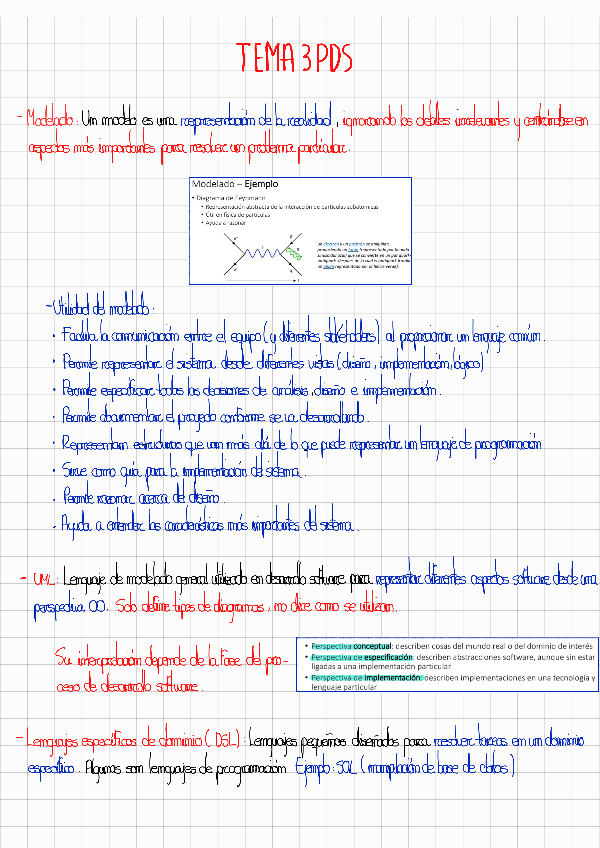 TEMA 3 PDS
- Modelado: Un modelo es una representación de la realidad, ignorando los detalles irrelevantes y centrándose en
aspectos más importantes para resolver un problema particular.
Modelado – Ejemplo
• Diagrama de Feynmann
• Representación abstracta de la interacción de partículas subatómicas
• Útil en física de partículas
• Ayuda a razonar
un electrón y un positrón se aniquilan,
produciendo un fotón (representado por la onda
sinusoidal azul) que se convierte en un par quark-
antiquark, después de lo cual el antiquark irradia
un gluon (representado por la hélice verde).
- Utilidad del modelado:
• Facilita la comunicación entre el equipo (y diferentes stakeholders) al proporcionar un lenguaje común.
• Permite representar el sistema desde diferentes vistas (diseño, implementación, lógica)
• Permite especificar todas las decisiones de análisis, diseño e implementación.
• Permite documentar el proyecto conforme se va desarrollando.
• Representan estructuras que van más allá de lo que puede representar un lenguaje de programación
• Sirve como guía para la implementación del sistema.
• Permite razonar acerca del diseño.
• Ayuda a entender las características más importantes del sistema.
- UML: Lenguaje de modelado general utilizado en desarrollo software para representar diferentes aspectos software desde una
perspectiva OO. Solo define tipos de diagramas, no dice como se utilizan.
Su interpretación depende de la fase del pro-
ceso de desarrollo software.
• Perspectiva conceptual: describen cosas del mundo real o del dominio de interés
• Perspectiva de especificación: describen abstracciones software, aunque sin estar
ligadas a una implementación particular
• Perspectiva de implementación: describen implementaciones en una tecnología y
lenguaje particular
- Lenguajes específicos de dominio (DSL): Lenguajes pequeños diseñados para resolver tareas en un dominio
específico. Algunos son lenguajes de programación Ejemplo: SQL (manipulación de base de datos)